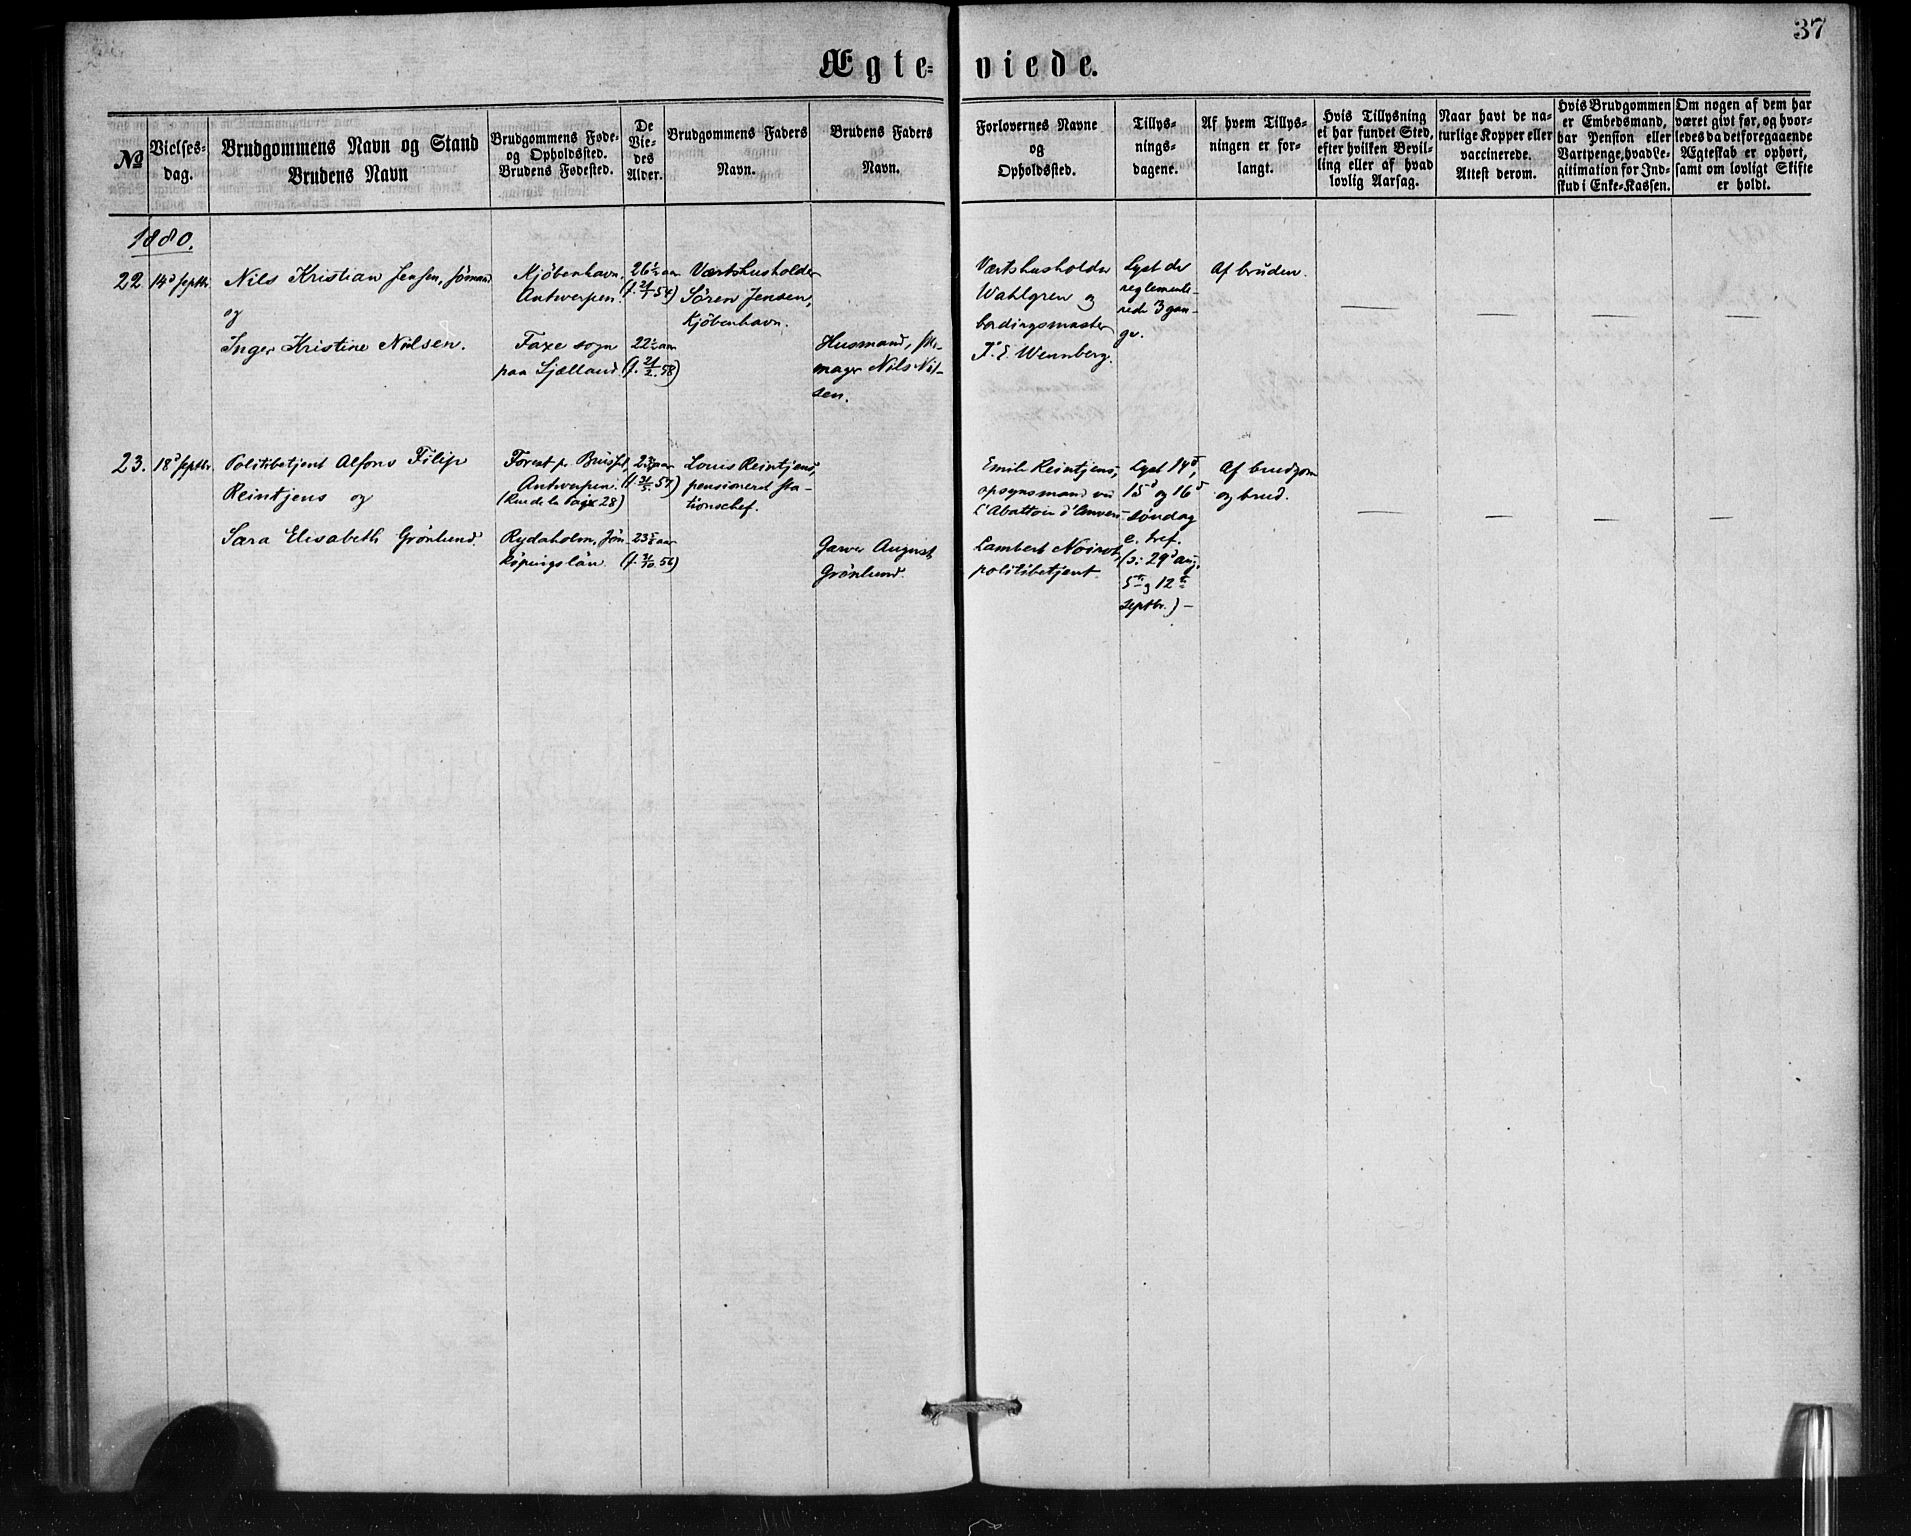 37
Ægte= viede.
№
Vielses=
dag.
Brudgommens Navn og Stand
Brudens Navn
Brudgommens Føde=
og Opholdssted.
Brudens Fødested.
De
Vie=
des
Alder.
Brudgommens Faders
Navn.
Brudens Faders
Navn.
Forlovernes Navne
og
Opholdssted.
Tillys=
nings=
dagene.
Af hvem Tillys=
ningen er for=
langt.
Hvis Tillysning
ei har fundet Sted,
efter hvilken Bevil=
ling eller af hvad
lovlig Aarsag.
Naar havt de na=
turlige Kopper eller
vaccinerede.
Attest derom.
Hvis Brudgommen
er Embedsmand,
har Pension eller
Vartpenge, hvad Le=
gitimation for Ind=
skud i Enke=Kassen.
Om nogen af dem har
været givt før, og hvor=
ledes da det foregaaende
Ægteskab er ophørt,
samt om lovligt Skifte
er holdt.
1880.
22
14d septbr.
Nils Kristian Jensen, sömand
og
Inger Kristine Nielsen.
Kjöbenhavn,
Antwerpen.
Faxe sogn
paa Sjælland.
26½ aar
(f. 21/1 54)
22½ aar
(f. 21/2 58)
Værtshusholder
Sören Jensen,
Kjöbenhavn.
Husmand, sko-
mager Nils Niel-
sen.
Værtshusholder
Wahlgren og
bordingsmaster
J. E. Wennberg.
Lyst de
reglemente-
rede 3 gan-
ge.
Af bruden.
— — — —
23.
18d septbr.
Politibetjent Alfons Filip
Reintjens og
Sara Elisabeth Grönlund.
Forest pr. Brüssel,
Antwerpen.
(Rue de la Paix 28)
Rydaholm, Jön-
köpingslän.
aar
aar
Louis Reintjens,
pensioneret sta-
tionschef.
Garver August
Grönlund.
Emile Reintjens,
opsynsmand ved
l'Abattoir d'Anvers
Lambert Noirot,
politibetjent.
Lyst 14d,
15d og 16d
söndag
e. tref.
(ɔ: 29d aug,
5te og 12te
septbr.) –
Af brudgom
og brud.
— — — —